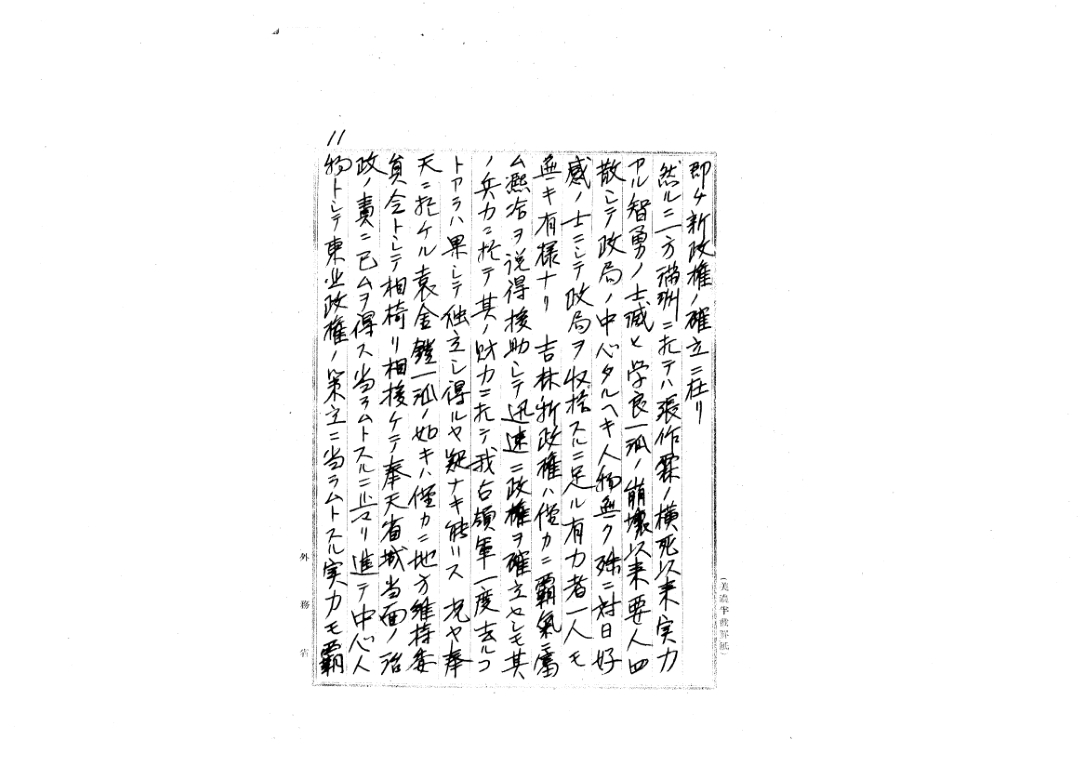 11
即チ新政権ノ確立ニ在リ
然ルニ一方満洲ニ於テハ張作霖ノ横死以来実力
アル智勇ノ士減ヒ学良一派ノ崩壊以来要人四
散シテ政局ノ中心タルヘキ人物無ク殊ニ対日好
感ノ士ニシテ政局ヲ収拾スルニ足ル有力者一人モ
無キ有様ナリ 吉林新政権ハ僅カニ覇氣ニ富
ム熙洽ヲ説得援助シテ迅速ニ政権ヲ確立セシモ其
ノ兵力ニ於テ其ノ財力ニ於テ我占領軍一度去ルコ
トアラハ果シテ独立シ得ルヤ疑ナキ能ハス 況ヤ奉
天ニ於ケル袁金鎧一派ノ如キハ僅カニ地方維持委
員会トシテ相椅リ相援ケテ奉天省城当面ノ治
政ノ責ニ已ムヲ得ス当ラムトスルニ止マリ進テ中心人
物トシテ東北政権ノ策立ニ当ラムトスル実力モ覇
外務省
(美濃半截罫紙)